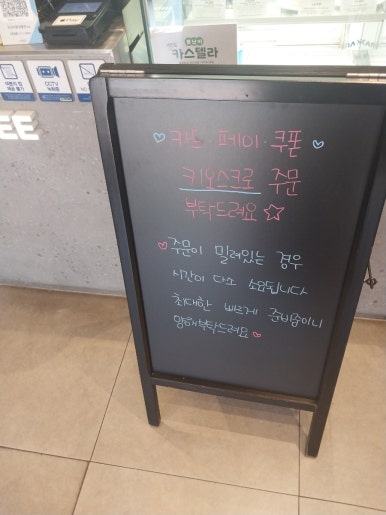 카스텔라
CCTV
EE
카드 페이·쿠폰
키오스크로 주문
부탁드려요
주문이 밀려있는 경우
시간이 다소 소요됩니다
최대한 빠르게 준비중이니
양해부탁드려요